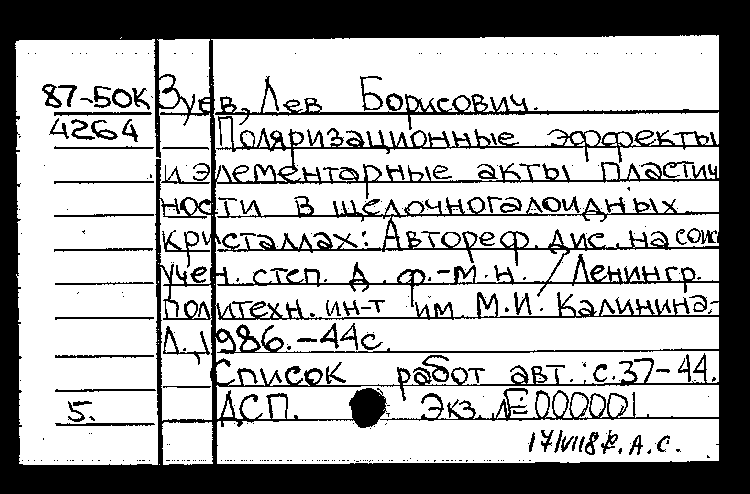 87-50К Зуев, Лев Борисович.
4264 Поляризационные эффекты
и элементарные акты пластич
ности в щелочногалоидных
кристаллах: Автореф. дис. на соис
учен. степ. д. ф.-м.н. / Ленингр.
политехн. ин-т им М.И. Калинина-
Л., 1986.-44с.
Список работ авт.: с.37-44.
5. ДСП. Экз. № 000001.
А.С.